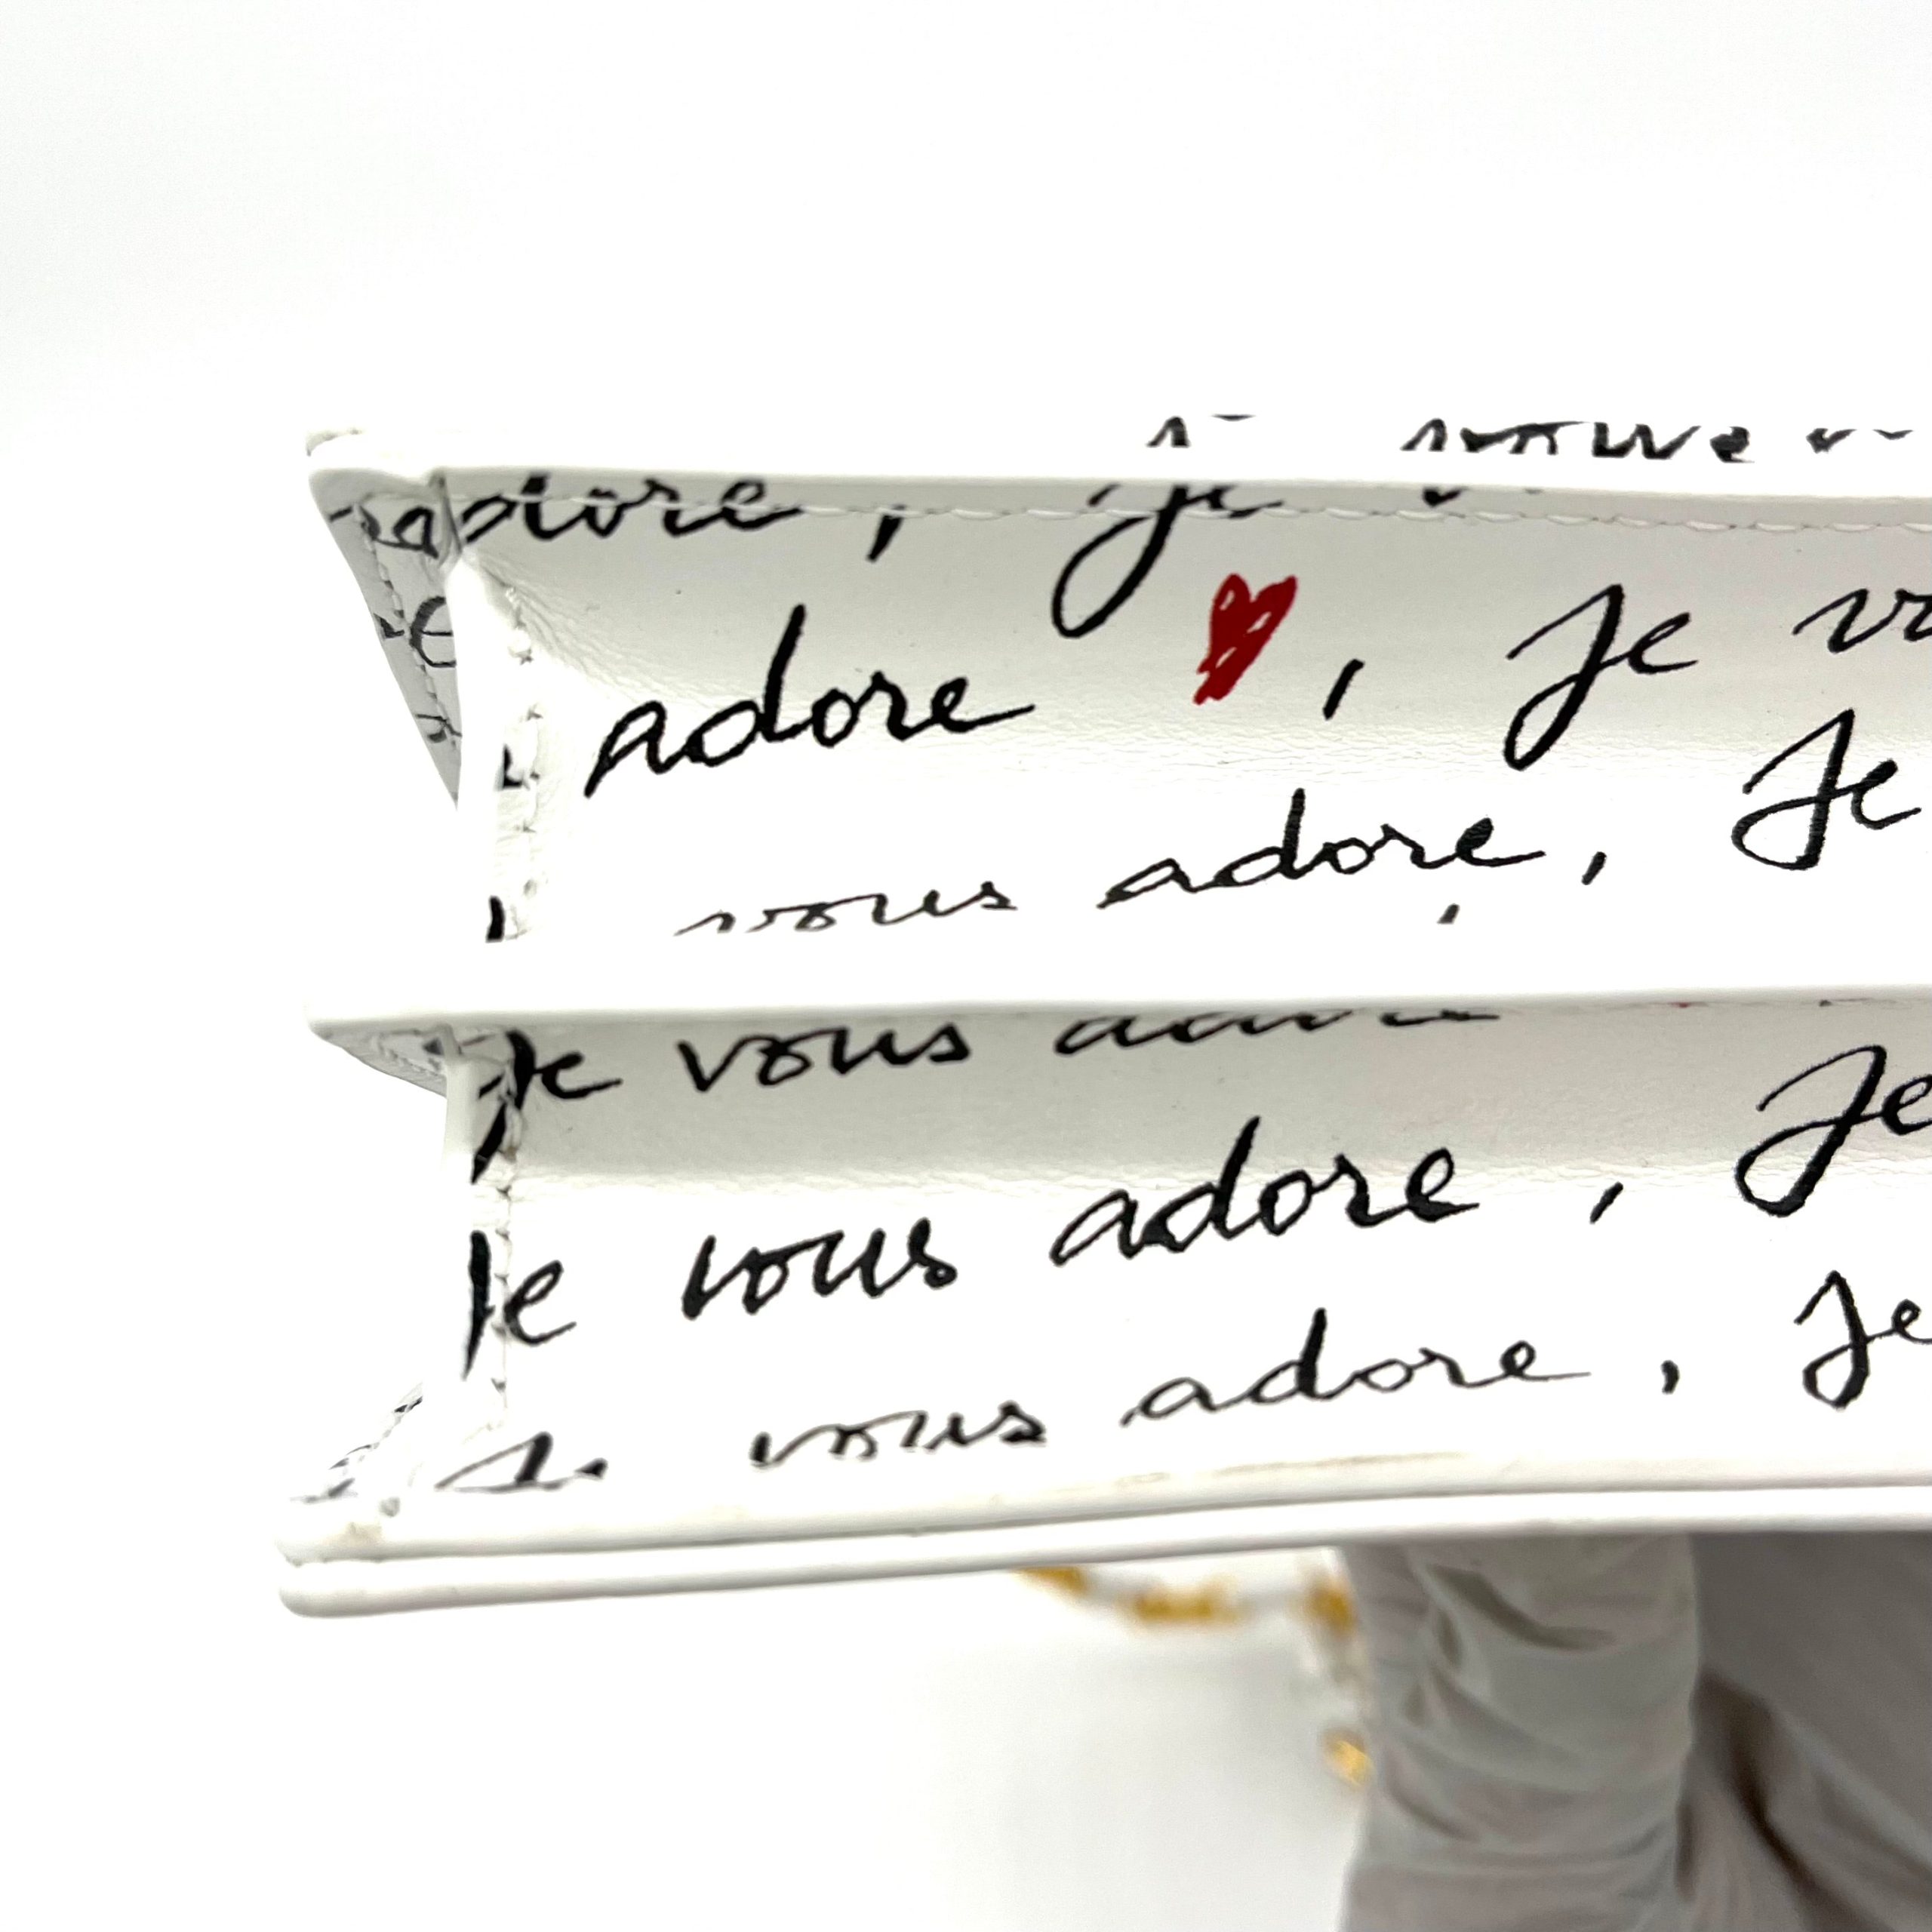 adore, Je
adore ♥, Je
vous adore, Je
Je vous
Je vous adore, Je
vous adore, Je